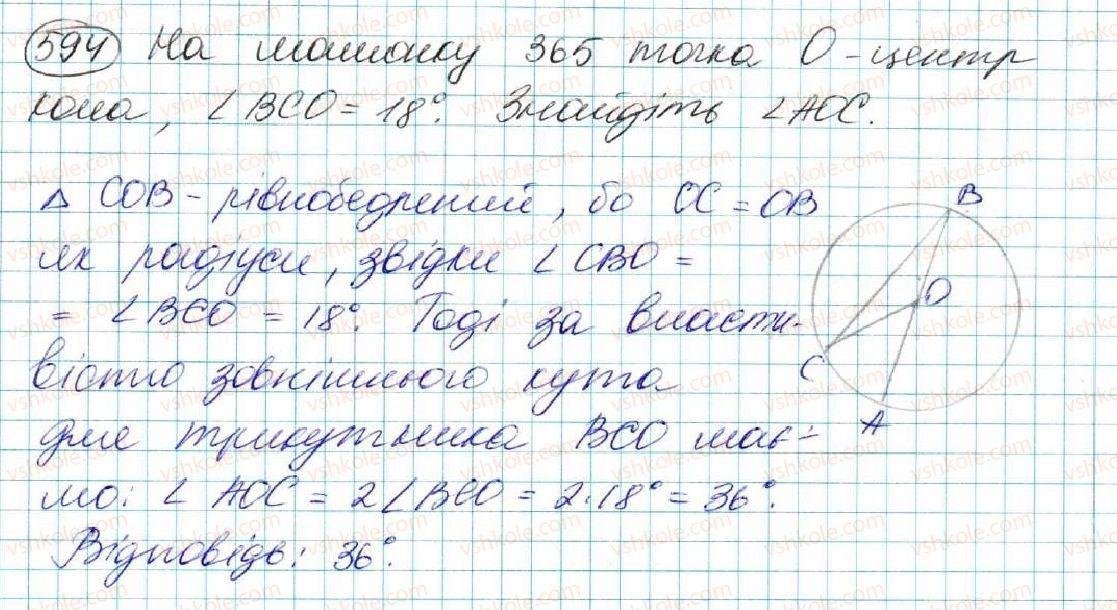 594 На малюнку 365 точка O - центр
кола, ∠BCO = 18°. Знайдіть ∠AOC.
△ COB - рівнобедрений, бо OC = OB
як радіуси, звідки ∠CBO =
= ∠BCO = 18°. Тоді за власти-
вістю зовнішнього кута
для трикутника BCO має-
мо: ∠AOC = 2∠BCO = 2·18° = 36°.
Відповідь: 36°.
B
O
C
A
vshkole.com